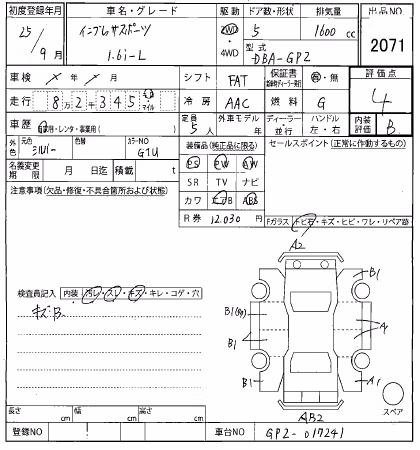 初度登録年月 車名・グレード 駆動 ドア数・形状 排気量 出品NO
25/9月 インプレサスポーツ 1.6i-L 2WD・4WD 5 1600cc 2071
型式 DBA-GP2
車検 年 月 シフト FAT 保証書 有・無 評価点 4
走行 8万2千345 km マイル 冷房 AAC 燃料 G
車歴 自家用・レンタ・事業用( ) 定員 5人 外車モデル 年 ディーラー・並行 ハンドル 左・右 内装評価 B
外色 元色 シルバー 色替 カラーNO G1U
装備品(純正品に限る) セールスポイント(正常に作動するもの)
PS PW AW
名義変更期限 月 日迄 積載 t SR TV ナビ
注意事項(欠品・修復・不具合箇所および状態) カワ エアB ABS
R券 12,030 Fガラス トビ石・キズ・ヒビ・ワレ・リペア跡
A2
B1 A1
検査員記入 内装 汚レ・スレ・キズ・キレ・コゲ・穴
キズB B1(W) A
B1
B1 A1
スペア
AB2
長さ cm 幅 cm 高さ cm
登録NO 車台NO GP2-017241